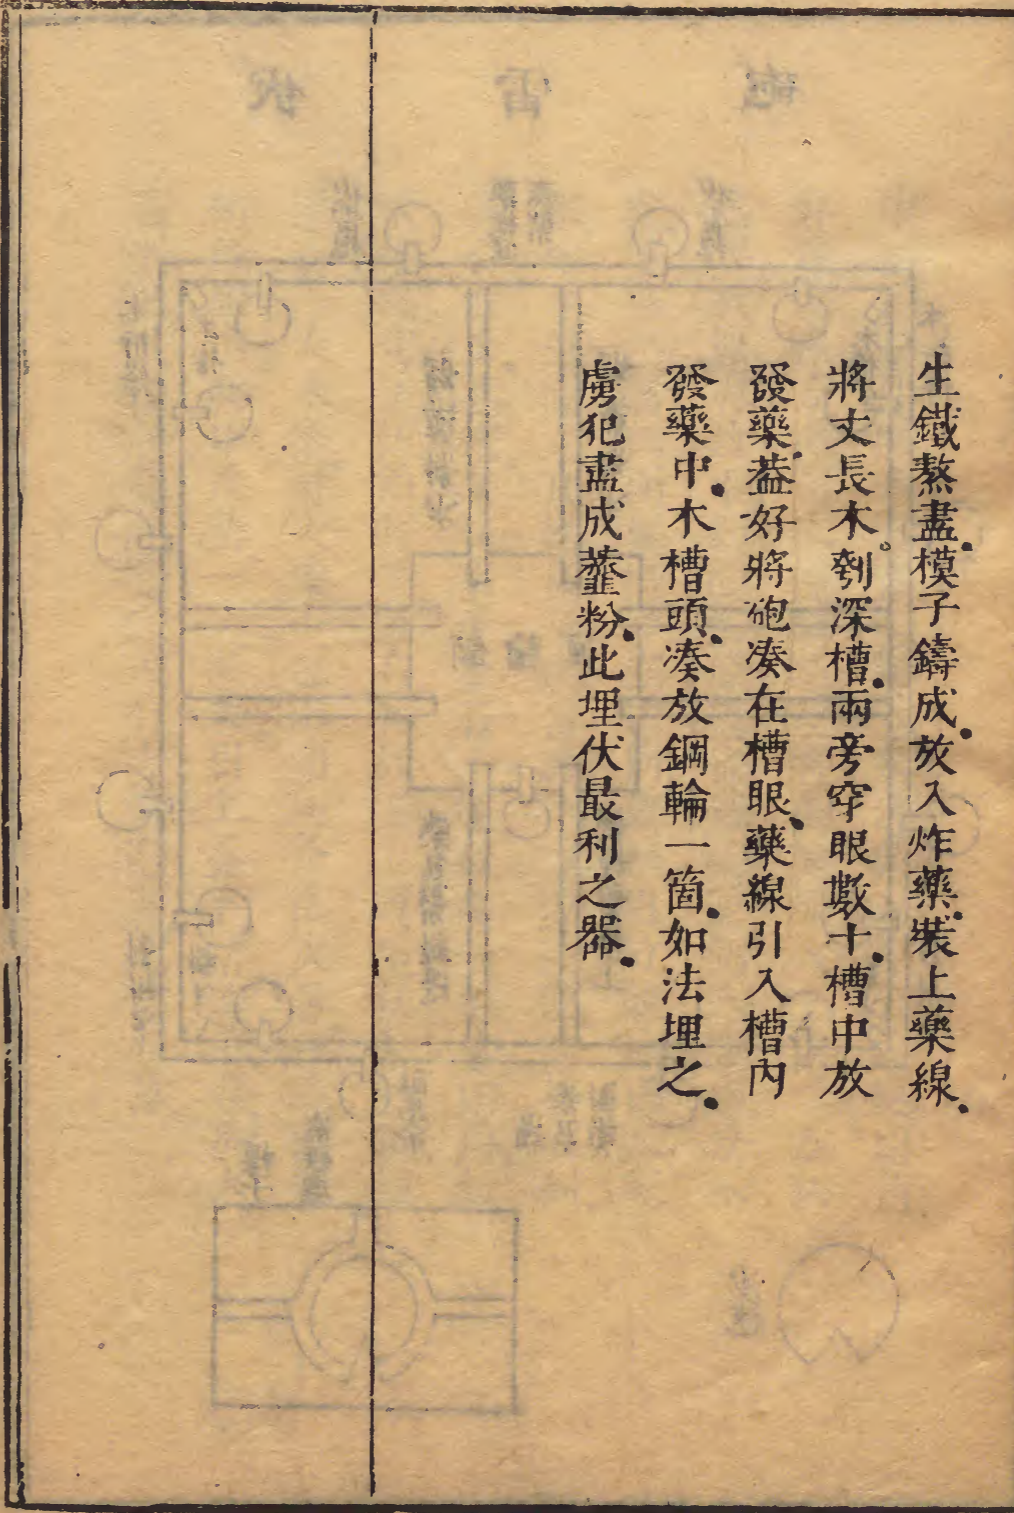 生鐵熬盡模子鑄成放入炸藥裝上藥線
將丈長木刳深槽兩旁穿眼數十槽中放
發藥葢好將砲凑在槽眼藥線引入槽內
發藥中木槽頭凑放鋼輪一箇如法埋之
虜犯盡成虀粉此埋伏最利之器